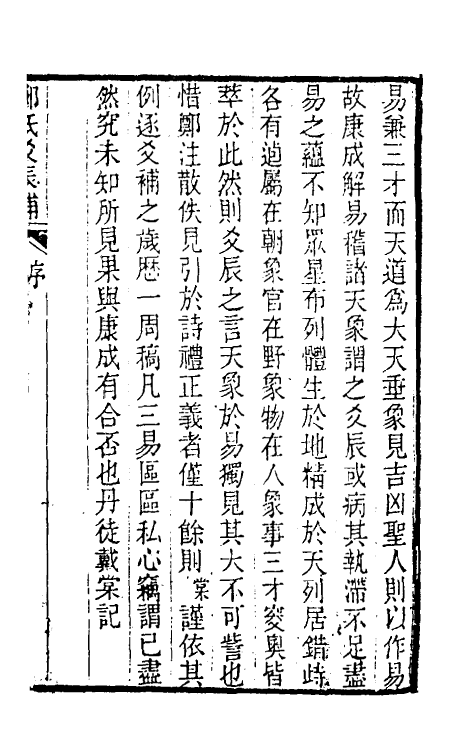 易兼三才而天道爲大天垂象見吉凶聖人則以作易
故康成解易稽諸天象謂之爻辰或病其執滯不足盡
易之蘊不知眾星布列體生於地精成於天列居錯峙
各有逌屬在朝象官在野象物在人象事三才窔奥皆
萃於此然則爻辰之言天象於易獨見其大不可訾也
惜鄭注散佚見引於詩禮正義者僅十餘則棠謹依其
例逐爻補之歲歷一周稿凡三易區區私心竊謂已盡
然究未知所見果與康成有合否也丹徒戴棠記
鄭氏爻辰補 序